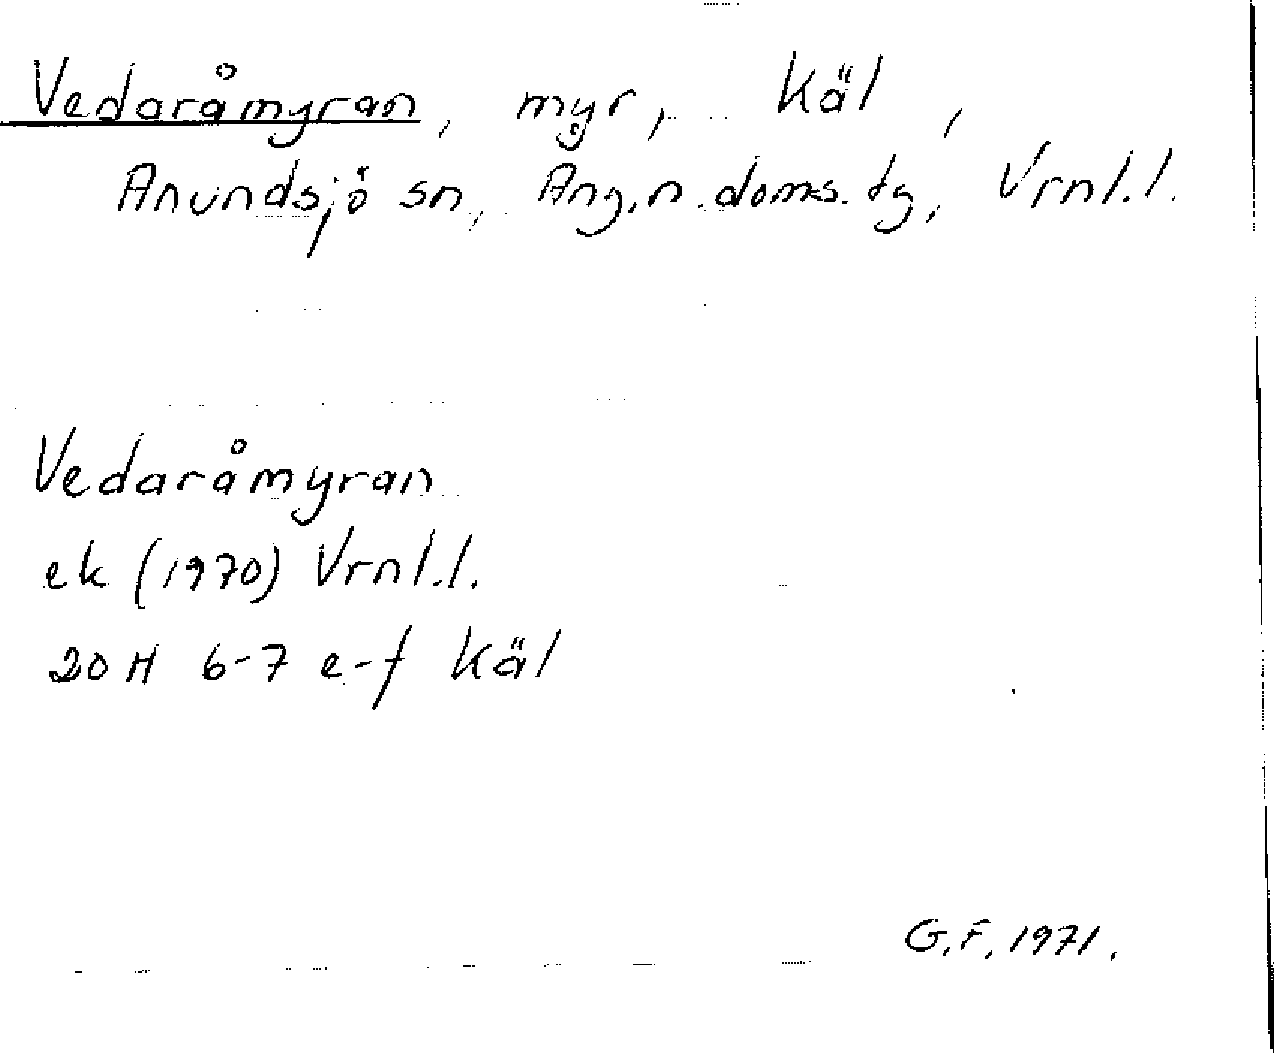 Vedaråmyran, myr, Käl,
Anundsjö sn, Ång.n.doms.tg, Vrnl.l.
Vedaråmyran
ek (1970) Vrnl.l.
20 H 6-7 e-f Käl
G.F. 1971.